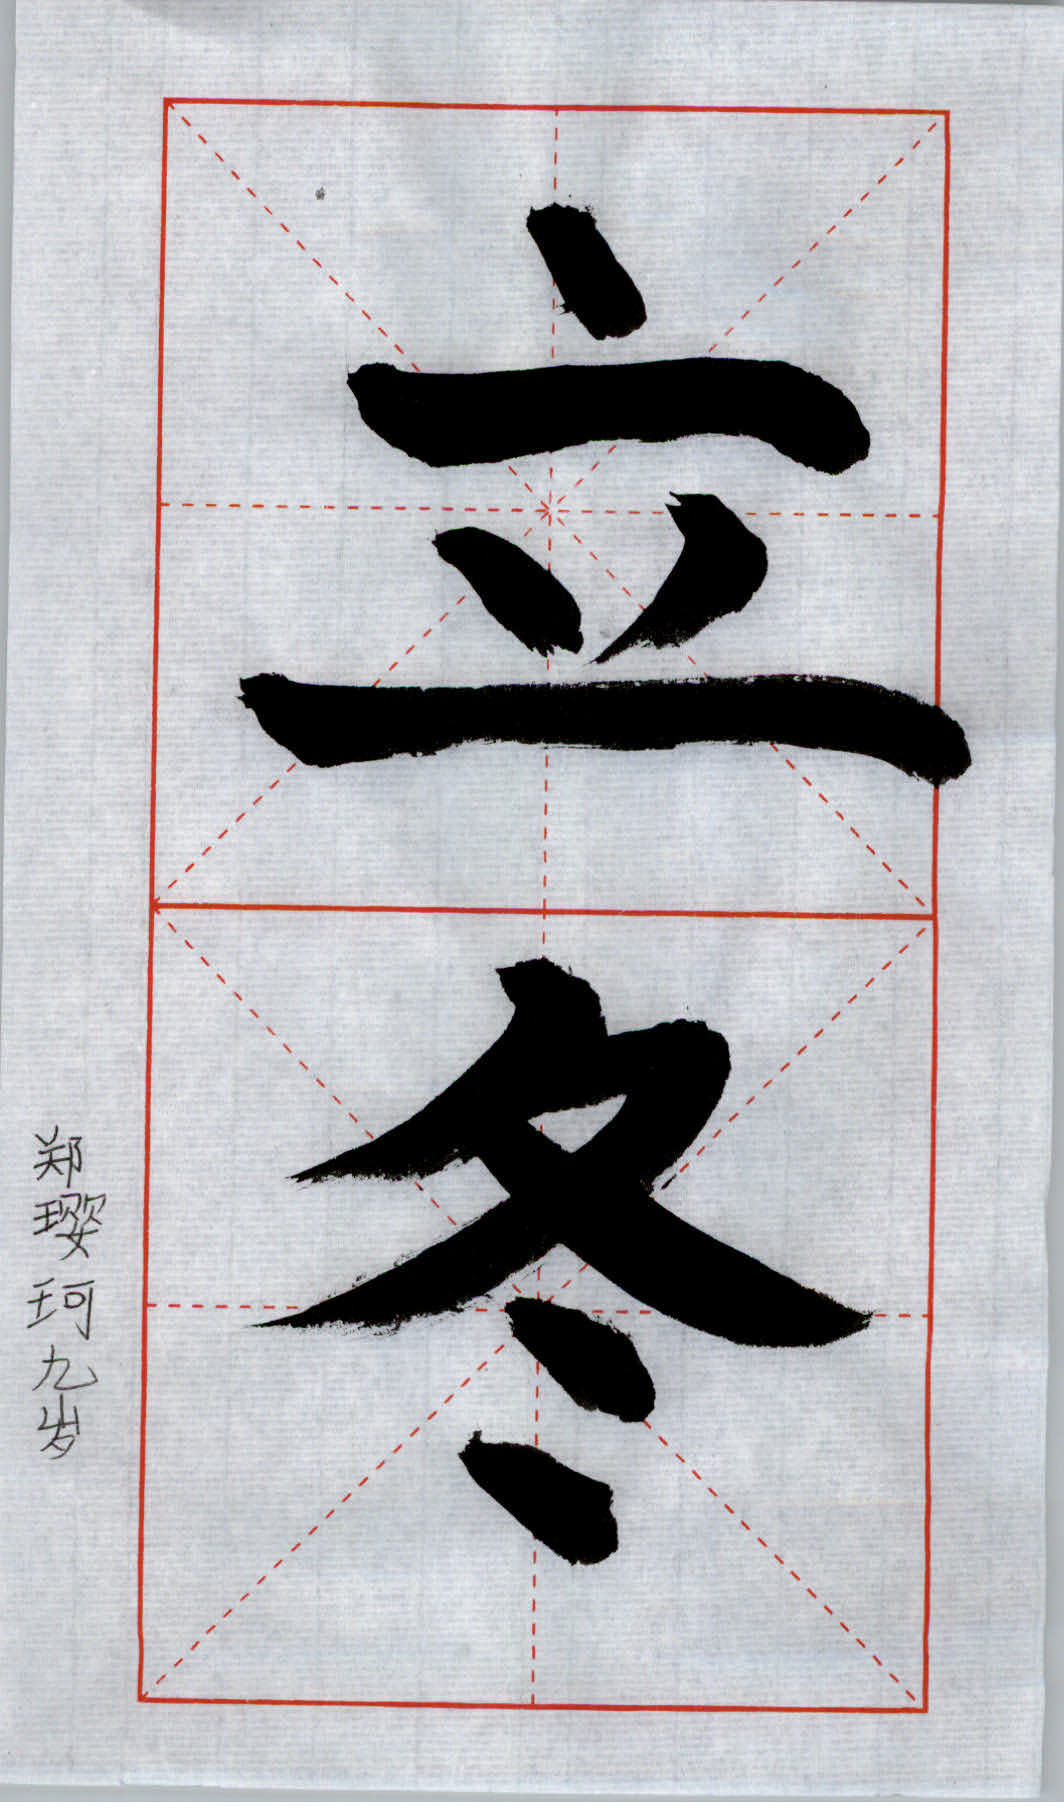 立冬
郑璎珂九岁